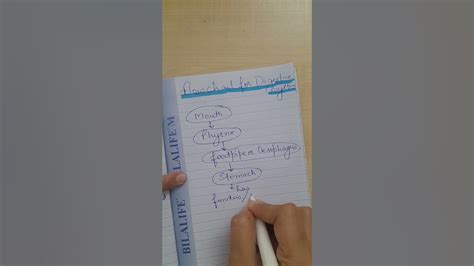 Flowchart for Digestive
System
Mouth
Phyrinx
foodpipe or Oesophagus
Stomach
has
fundus/
BILALIFE
LALIFE M